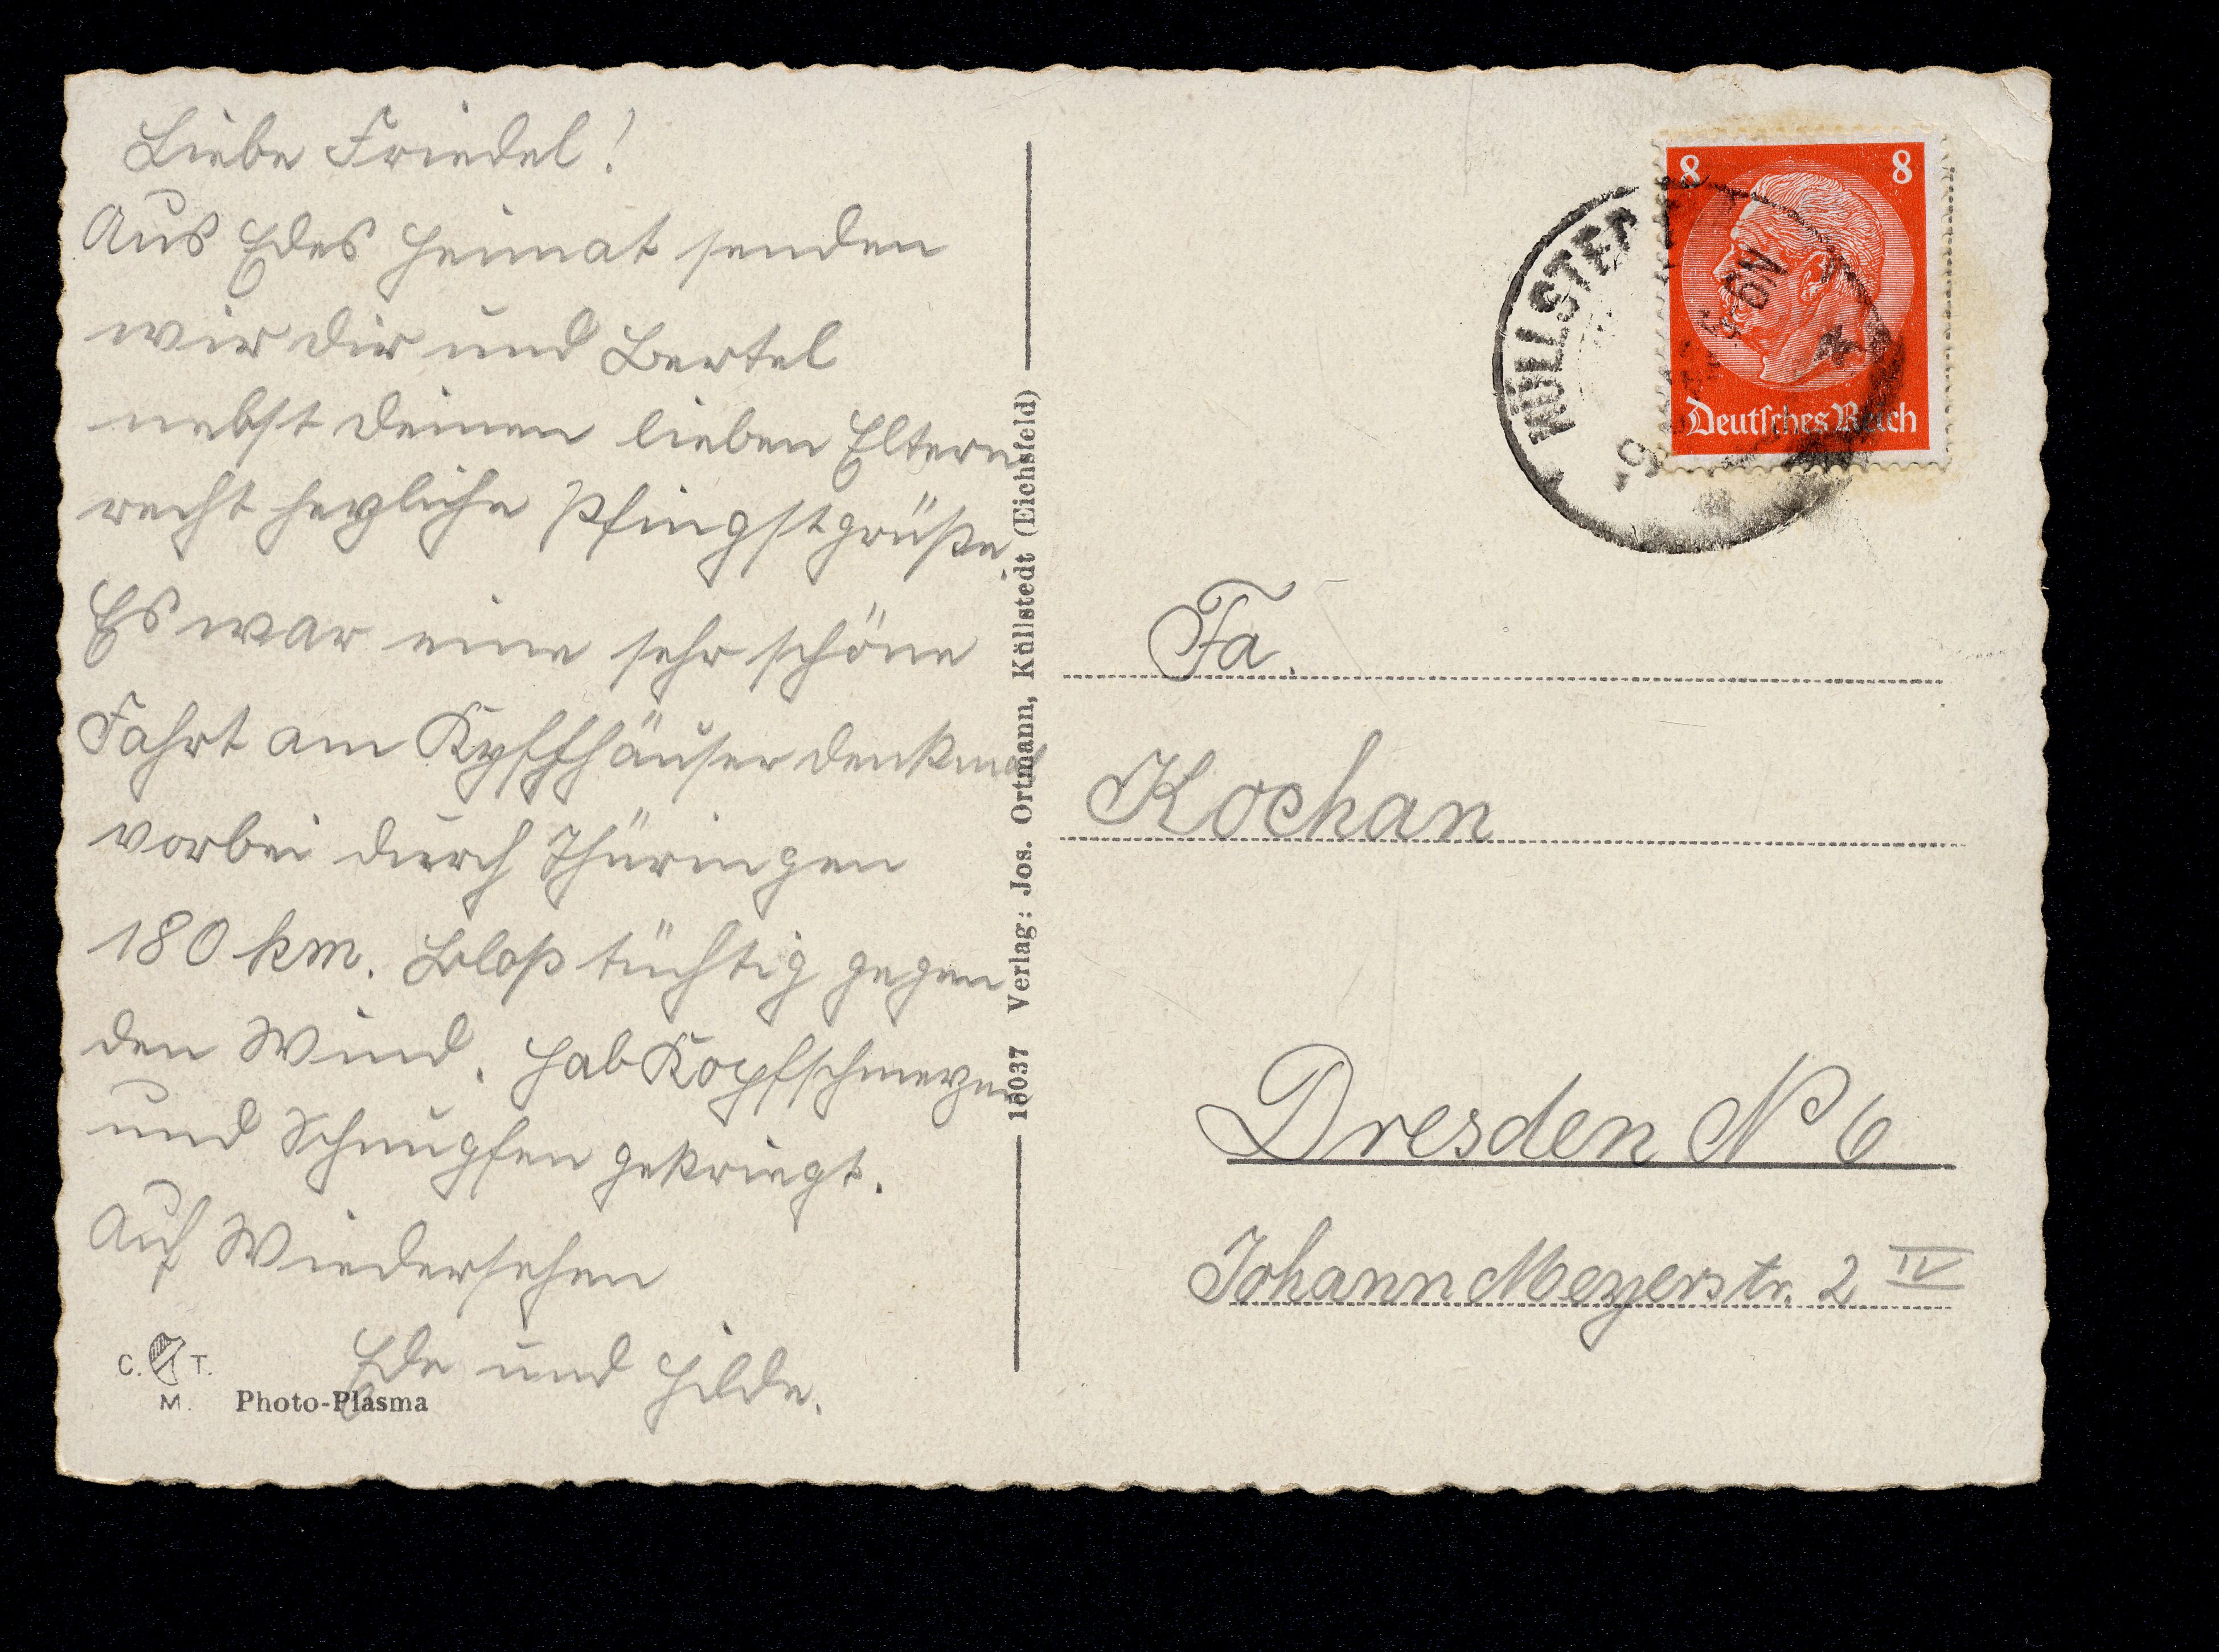 Liebe Friedel!
Aus Edes Heimat senden
wir dir und Bertel
nebst deinen lieben Eltern
recht herzliche Pfingstgrüße.
Es war eine sehr schöne
Fahrt am Kyffhäuserdenkmal
vorbei durch Thüringen
180 km. Bloß tüchtig gegen
den Wind. Hab Kopfschmerzen
und Schnupfen gekriegt.
Auf Wiedersehen
Ede und Hilde.
C. T.
M. Photo-Plasma
15037 Verlag: Jos. Ortmann, Küllstedt (Eichsfeld)
8 8
Deutsches Reich
Fa.
Kochan
Dresden N 6
Johann Meyerstr. 2 IV